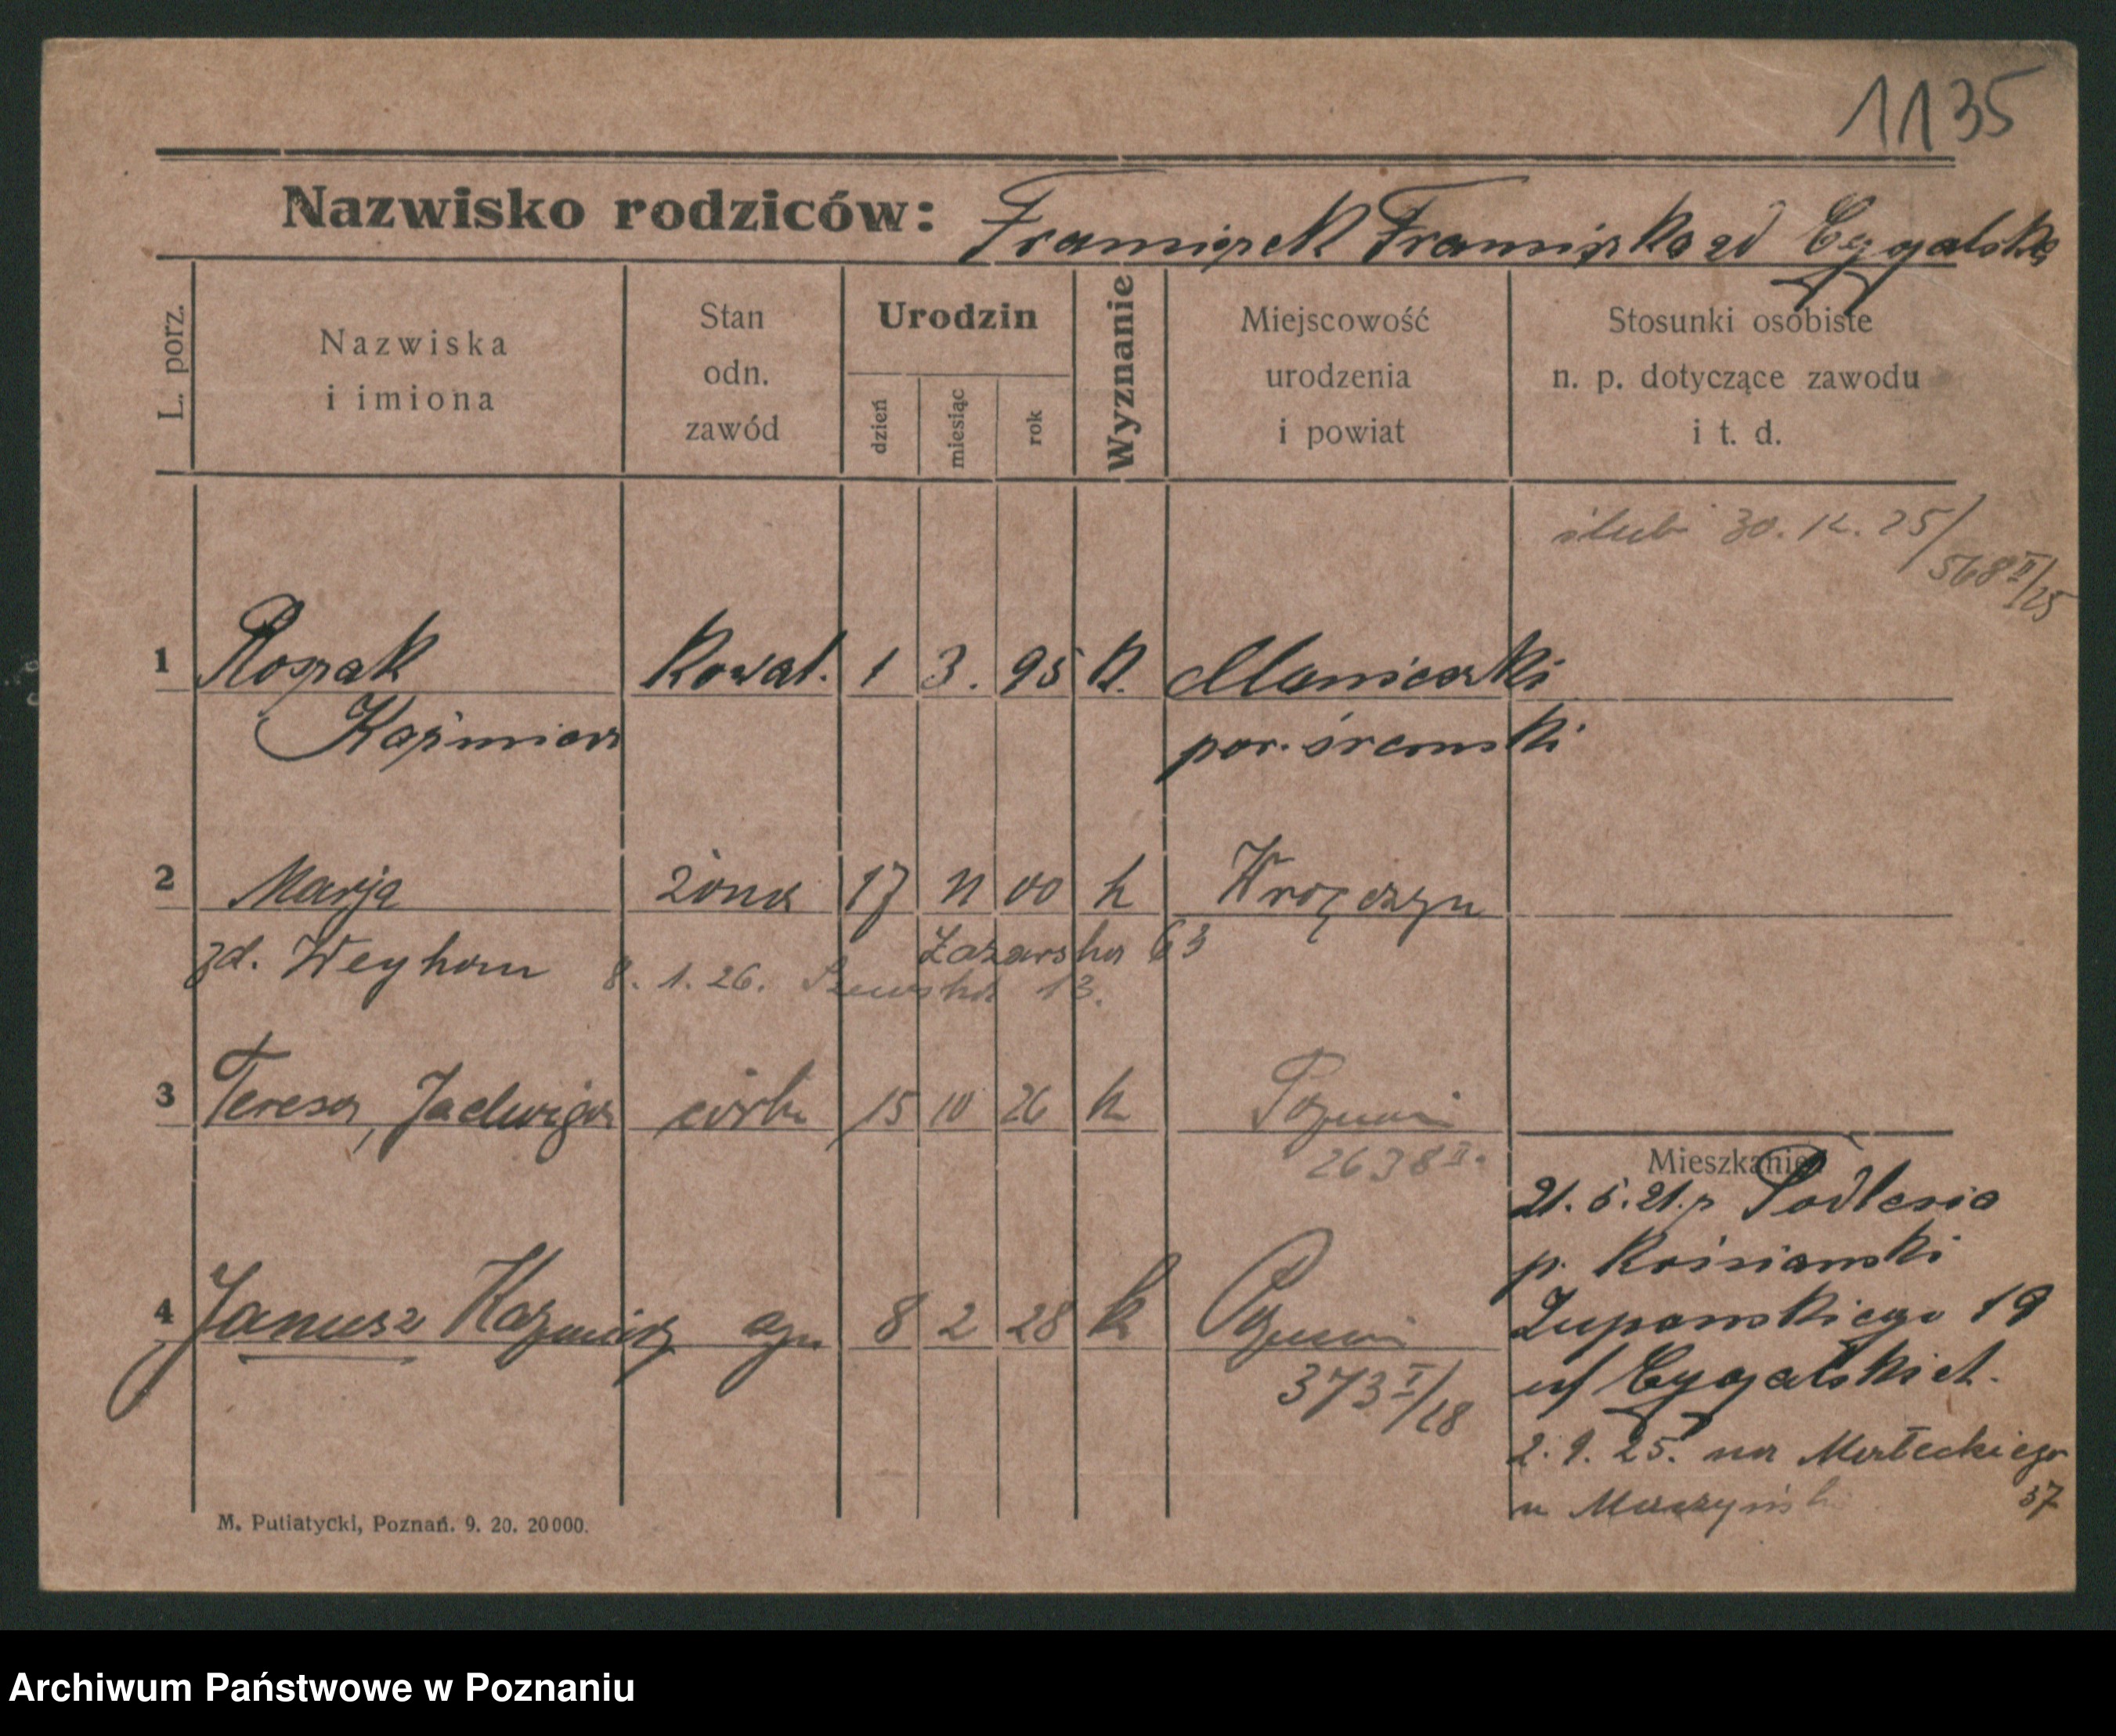 1135
Nazwisko rodziców: Franciszek Franciszka zd Cygalska
L. porz.
Nazwiska
i imiona
Stan
odn.
zawód
Urodzin
dzień
miesiąc
rok
Wyznanie
Miejscowość
urodzenia
i powiat
Stosunki osobiste
n. p. dotyczące zawodu
i t. d.
ślub 30. 12. 25/
568 II/25
1 Rospak kowal. 1 3. 95 k. Manieczki
Kaźmierz pow. śremski
2 Marja żona 17 11 00 k Wronczyn
zd. Weyhom
Łazarska 63
8. 1. 26. Szewska 13.
3 Teresa, Jadwiga córk 15 10 26 k Poznań
2638 II.
4 Janusz Kazmierz syn 8 2 28 k Poznań
373 I/28
Mieszkanie:
21. 5. 21. z Podlesia
p. Kościański
Żupańskiego 19
u/ Cygalskich.
2. 9. 25. na Małeckiego
37
u
M. Putiatycki, Poznań. 9. 20. 20000.
Archiwum Państwowe w Poznaniu